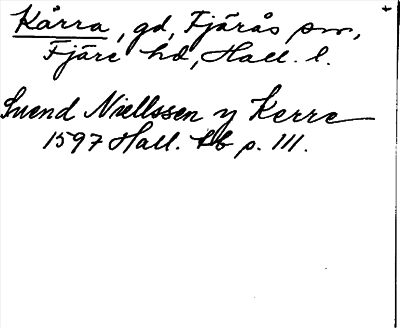 Kärra, gd, Fjärås sn,
Fjäre hd, Hall. l.
Suend Niellssen y Kerre
1597 Hall. lb p. 111.